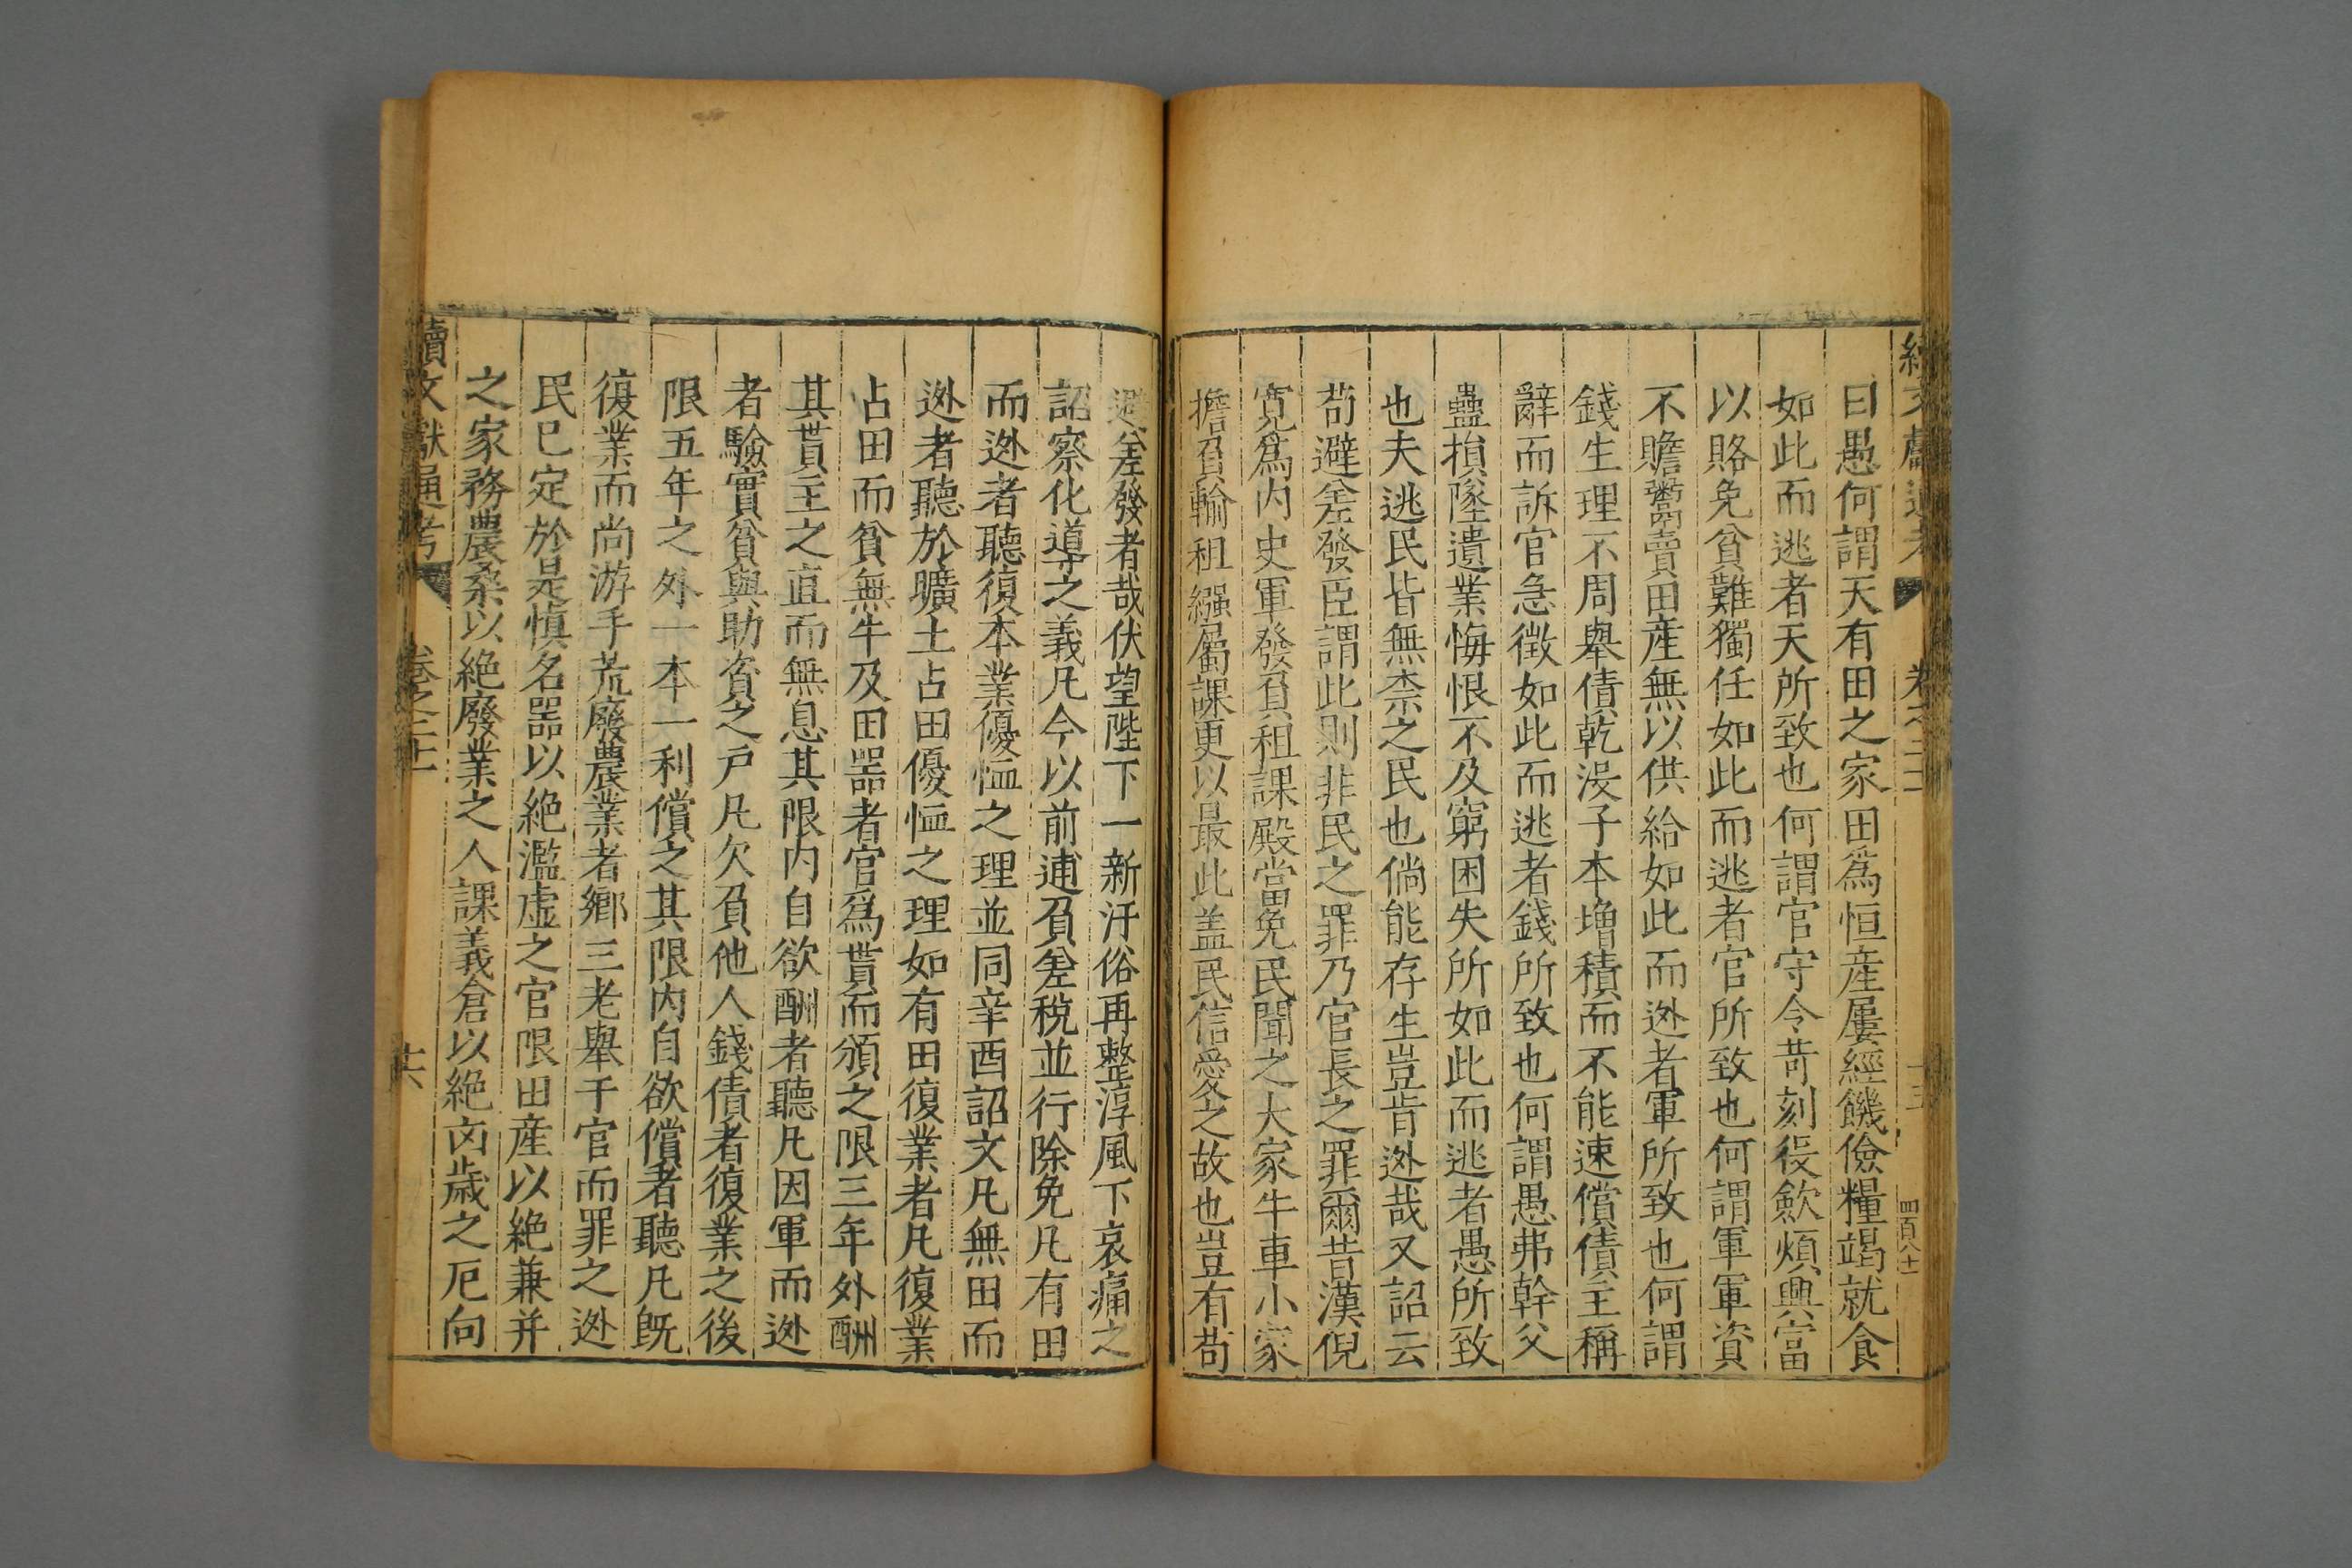 續文獻通考 卷之二十 四百八十
曰愚何謂天有田之家田爲恒産屢經饑儉糧竭就食
如此而逃者天所致也何謂官守令苛刻役歛煩興富
以賂免貧難獨任如此而逃者官所致也何謂軍軍資
不贍鬻賣田産無以供給如此而迯者軍所致也何謂
錢生理不周舉債乾没子本増積而不能速償債主稱
辭而訴官急徴如此而逃者錢所致也何謂愚弗幹父
蠱損墜遺業悔恨不及窮困失所如此而逃者愚所致
也夫逃民皆無柰之民也倘能存生豈肯迯哉又詔云
苟避差發臣謂此則非民之罪乃官長之罪爾昔漢倪
寛爲内史軍發負租課殿當免民聞之大家牛車小家
擔負輸租繦屬課更以最此盖民信愛之故也豈有苟
避差發者哉伏望陛下一新汙俗再整淳風下哀痛之
詔察化導之義凡今以前逋負差税並行除免凡有田
而迯者聽復本業優恤之理並同辛酉詔文凡無田而
迯者聽於曠土占田優恤之理如有田復業者凡復業
占田而貧無牛及田噐者官爲貰而頒之限三年外酬
其貰主之直而無息其限内自欲酬者聽凡因軍而迯
者驗實貧與助資之户凡欠負他人錢債者復業之後
限五年之外一本一利償之其限内自欲償者聽凡既
復業而尚游手荒廢農業者鄉三老舉于官而罪之迯
民已定於是愼名噐以絶濫虚之官限田産以絶兼并
之家務農桑以絶廢業之人課義倉以絶凶歳之厄向
續文獻通考 卷之二十 十六